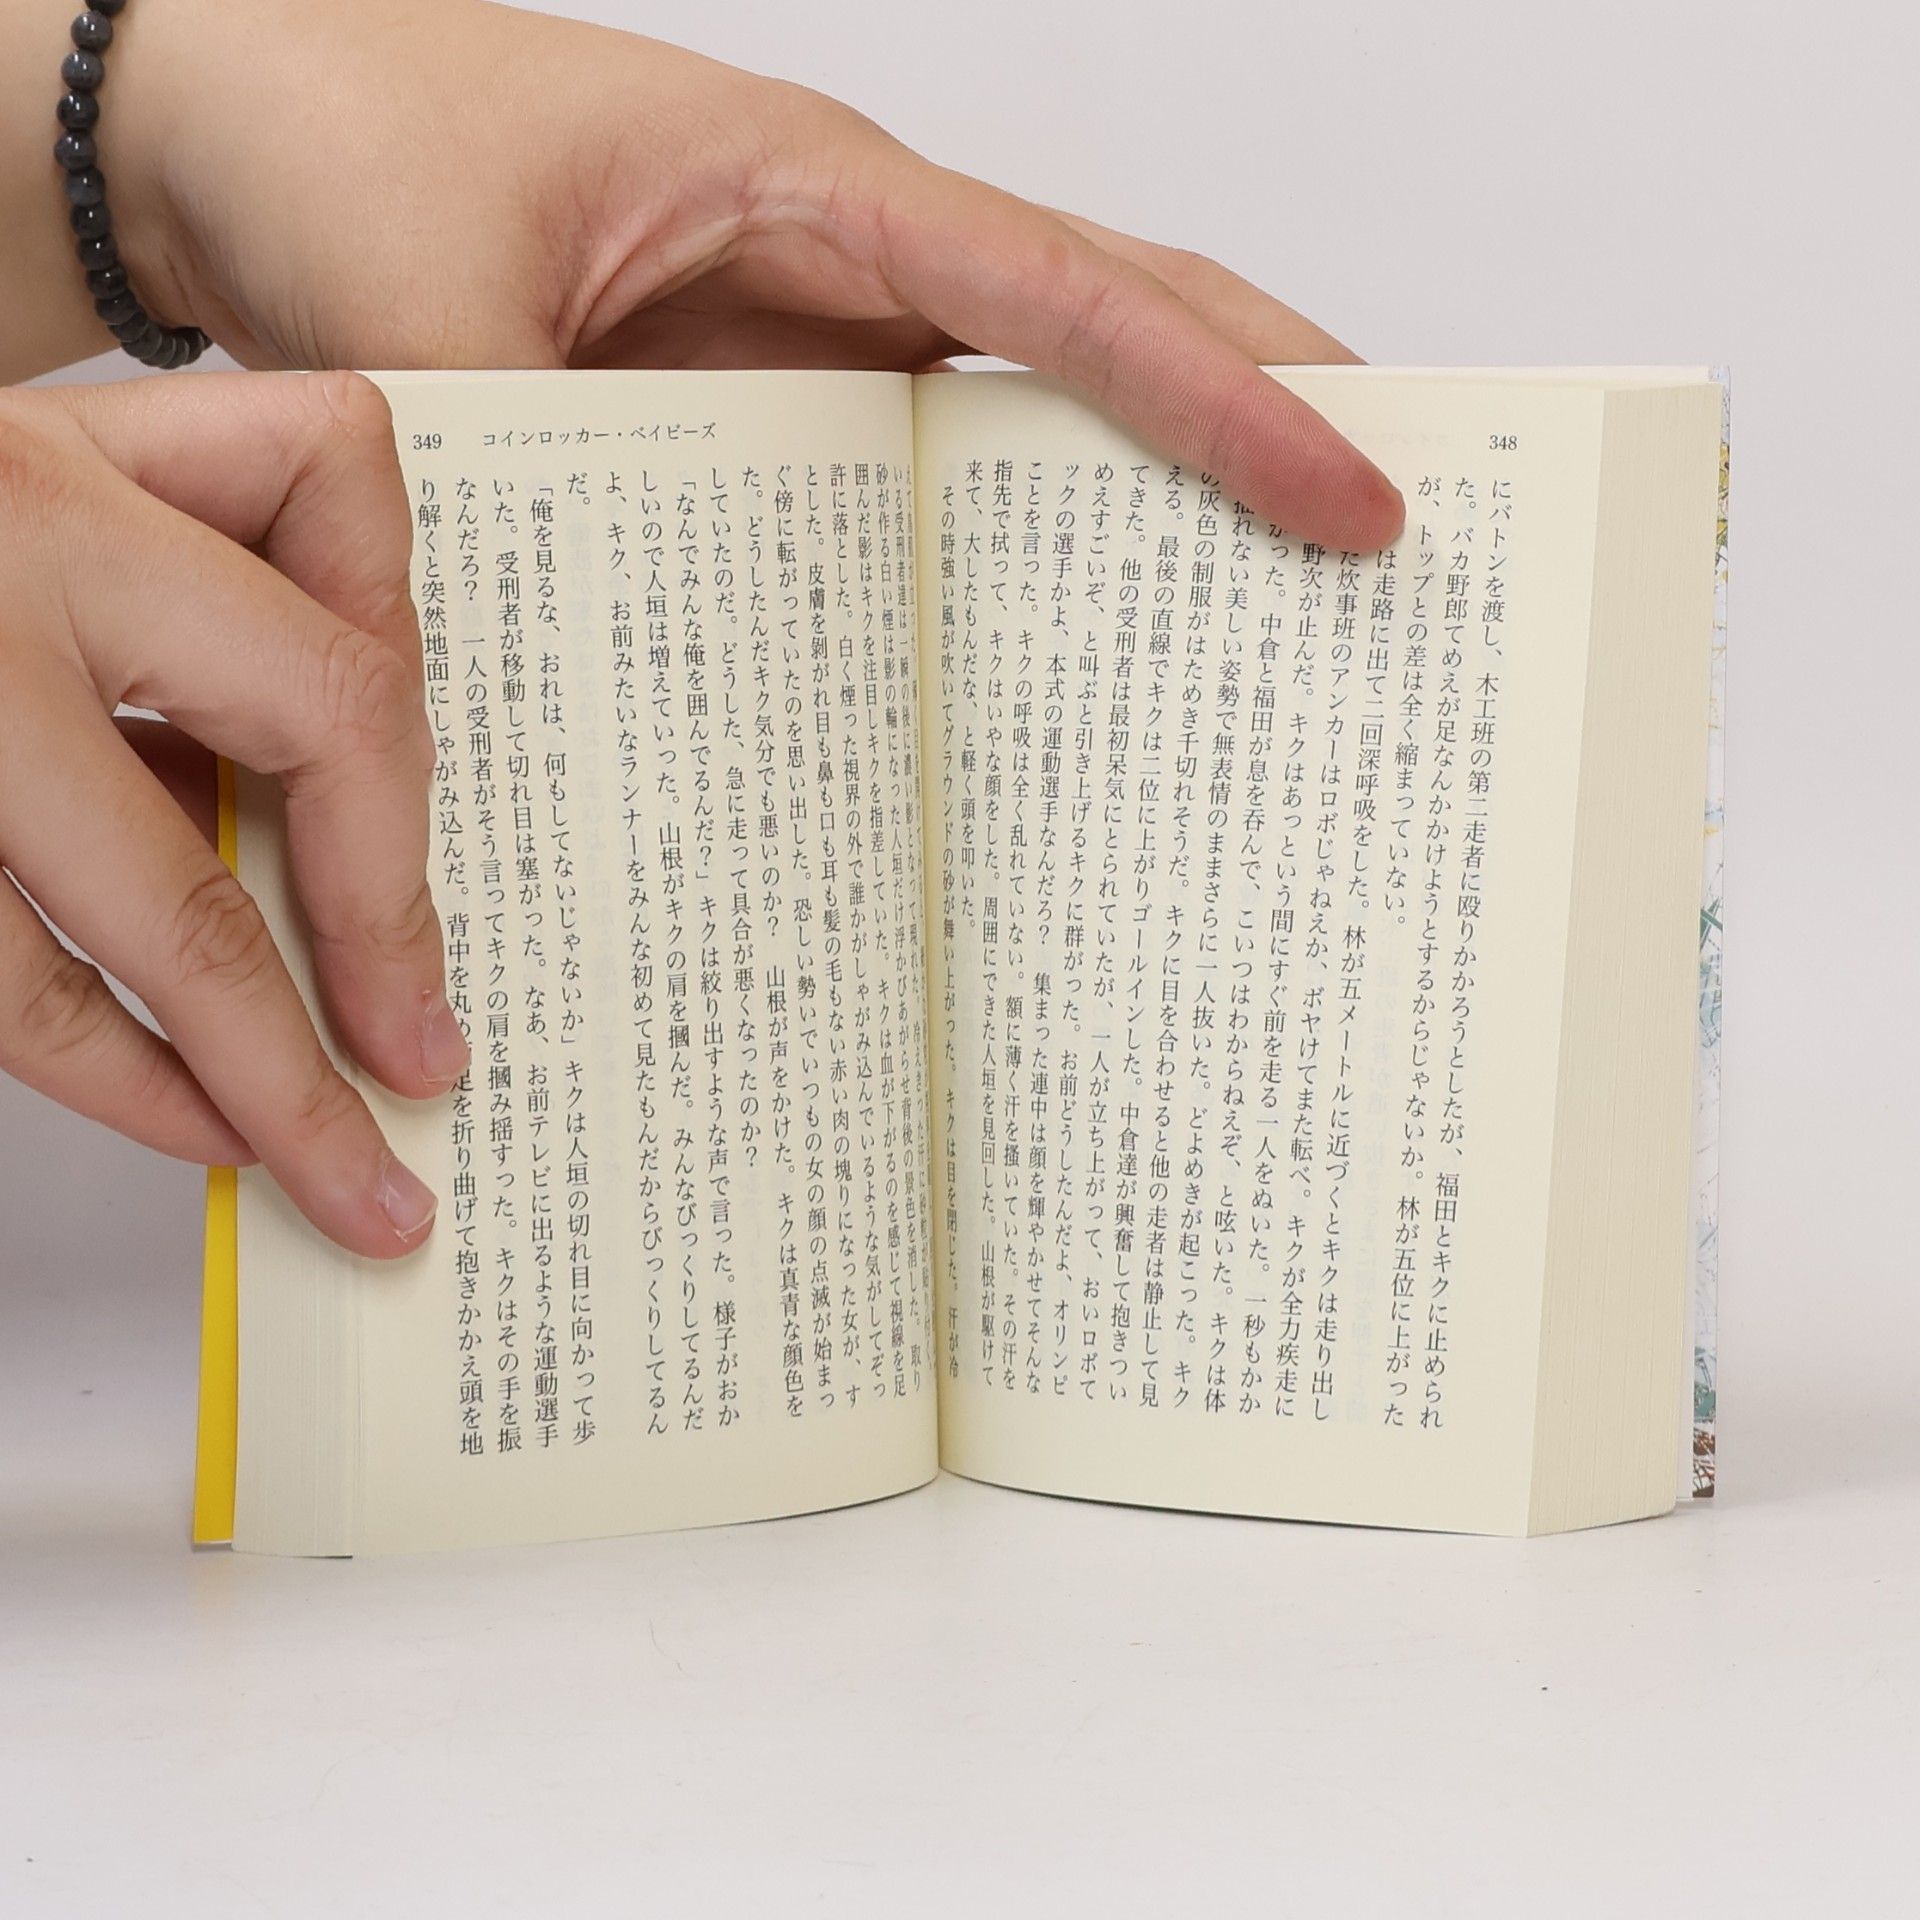 348
にバトンを渡し、木工班の第二走者に殴りかかろうとしたが、福田とキクに止められ
た。バカ野郎てめえが足なんかかけようとするからじゃないか。林が五位に上がった
が、トップとの差は全く縮まっていない。
は走路に出て二回深呼吸をした。林が五メートルに近づくとキクは走り出し
た炊事班のアンカーはロボじゃねえか、ボヤけてまた転べ。キクが全力疾走に
野次が止んだ。キクはあっという間にすぐ前を走る一人をぬいた。一秒もかか
かった。中倉と福田が息を呑んで、こいつはわからねえぞ、と呟いた。キクは体
揺れない美しい姿勢で無表情のままさらに一人抜いた。どよめきが起こった。キク
の灰色の制服がはためき千切れそうだ。キクに目を合わせると他の走者は静止して見
える。最後の直線でキクは二位に上がりゴールインした。中倉達が興奮して抱きつい
てきた。他の受刑者は最初呆気にとられていたが、一人が立ち上がって、おいロボて
めえすごいぞ、と叫ぶと引き上げるキクに群がった。お前どうしたんだよ、オリンピ
ックの選手かよ、本式の運動選手なんだろ？　集まった連中は顔を輝やかせてそんな
ことを言った。キクの呼吸は全く乱れていない。額に薄く汗を搔いていた。その汗を
指先で拭って、キクはいやな顔をした。周囲にできた人垣を見回した。山根が駆けて
来て、大したもんだな、と軽く頭を叩いた。
その時強い風が吹いてグラウンドの砂が舞い上がった。キクは目を閉じた。汗が冷
349 コインロッカー・ベイビーズ
いる受刑者達は一瞬の後に濃い影となって現れた。冷えきった汗に
砂が作る白い煙は影の輪になった人垣だけ浮かびあがらせ背後の景色を消した。取り
囲んだ影はキクを注目しキクを指差していた。キクは血が下がるのを感じて視線を足
許に落とした。白く煙った視界の外で誰かがしゃがみ込んでいるような気がしてぞっ
とした。皮膚を剝がれ目も鼻も口も耳も髪の毛もない赤い肉の塊りになった女が、す
ぐ傍に転がっていたのを思い出した。恐しい勢いでいつもの女の顔の点滅が始まっ
た。どうしたんだキク気分でも悪いのか？　山根が声をかけた。キクは真青な顔色を
していたのだ。どうした、急に走って具合が悪くなったのか？
「なんでみんな俺を囲んでるんだ？」キクは絞り出すような声で言った。様子がおか
しいので人垣は増えていった。山根がキクの肩を摑んだ。みんなびっくりしてるんだ
よ、キク、お前みたいなランナーをみんな初めて見たもんだからびっくりしてるん
だ。
「俺を見るな、おれは、何もしてないじゃないか」キクは人垣の切れ目に向かって歩
いた。受刑者が移動して切れ目は塞がった。なあ、お前テレビに出るような運動選手
なんだろ？　一人の受刑者がそう言ってキクの肩を摑み揺すった。キクはその手を振
り解くと突然地面にしゃがみ込んだ。背中を丸め 足を折り曲げて抱きかかえ頭を地